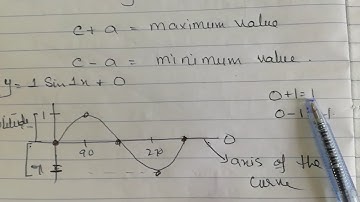 c + a = maximum value
c - a = minimum value.
y = 1 Sin 1x + 0
0+1=1
1
0
90
270
axis of the
curve